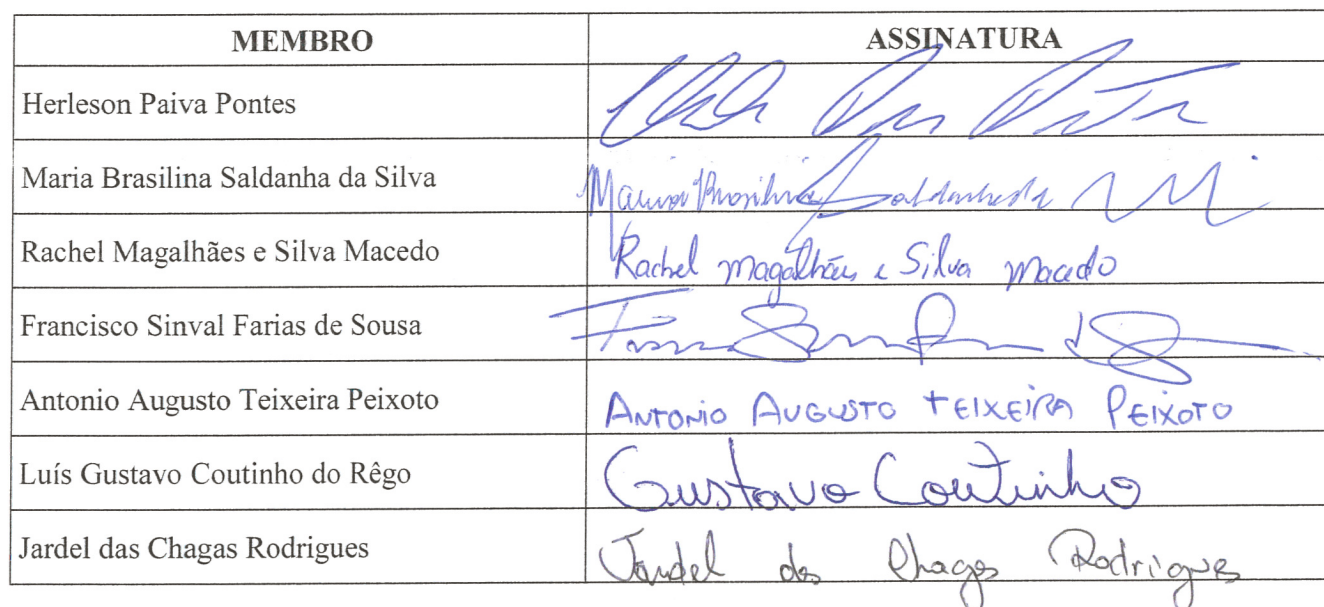 MEMBRO ASSINATURA
Herleson Paiva Pontes
Maria Brasilina Saldanha da Silva Maria Brasilina Saldanha da
Rachel Magalhães e Silva Macedo Rachel Magalhães e Silva Macedo
Francisco Sinval Farias de Sousa
Antonio Augusto Teixeira Peixoto ANTONIO AUGUSTO TEIXEIRA PEIXOTO
Luís Gustavo Coutinho do Rêgo Gustavo Coutinho
Jardel das Chagas Rodrigues Jardel das Chagas Rodrigues